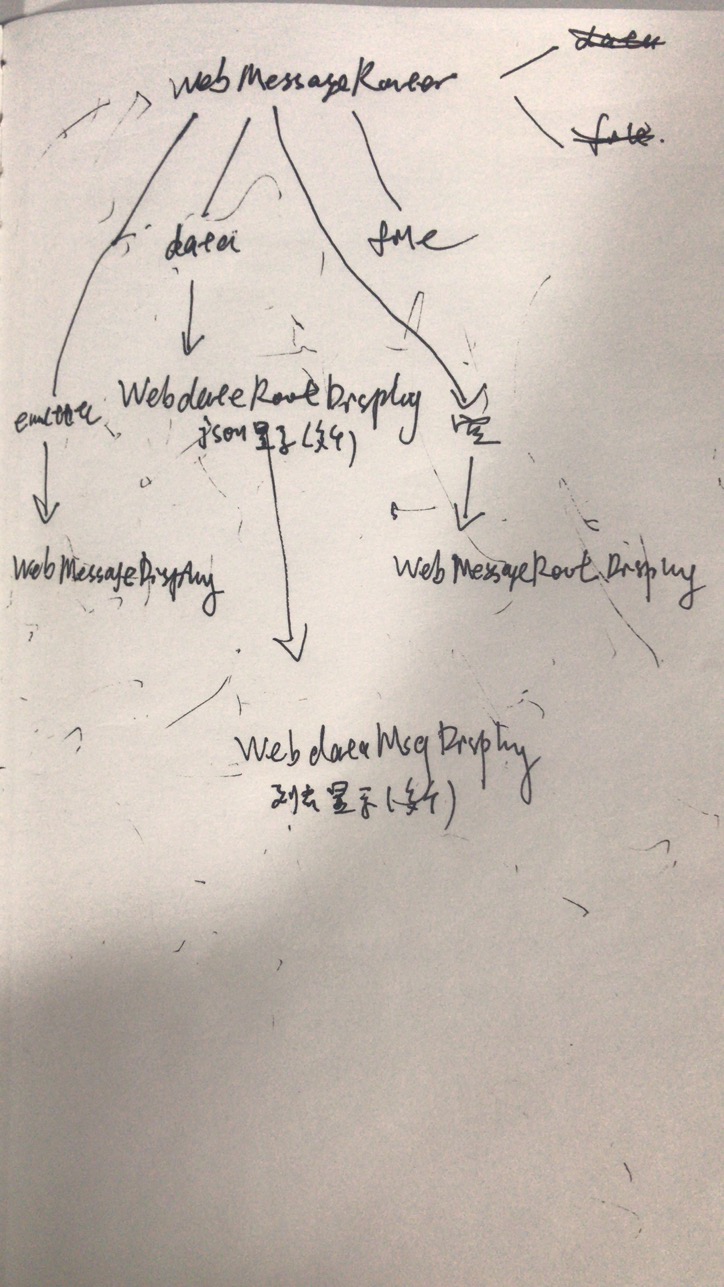 WebMessageRouter
data
file
WebdataRootDisplay
json显示(文件)
空
WebMessageDisplay
WebMessageRootDisplay
WebdataMsgDisplay
列表显示(文件)